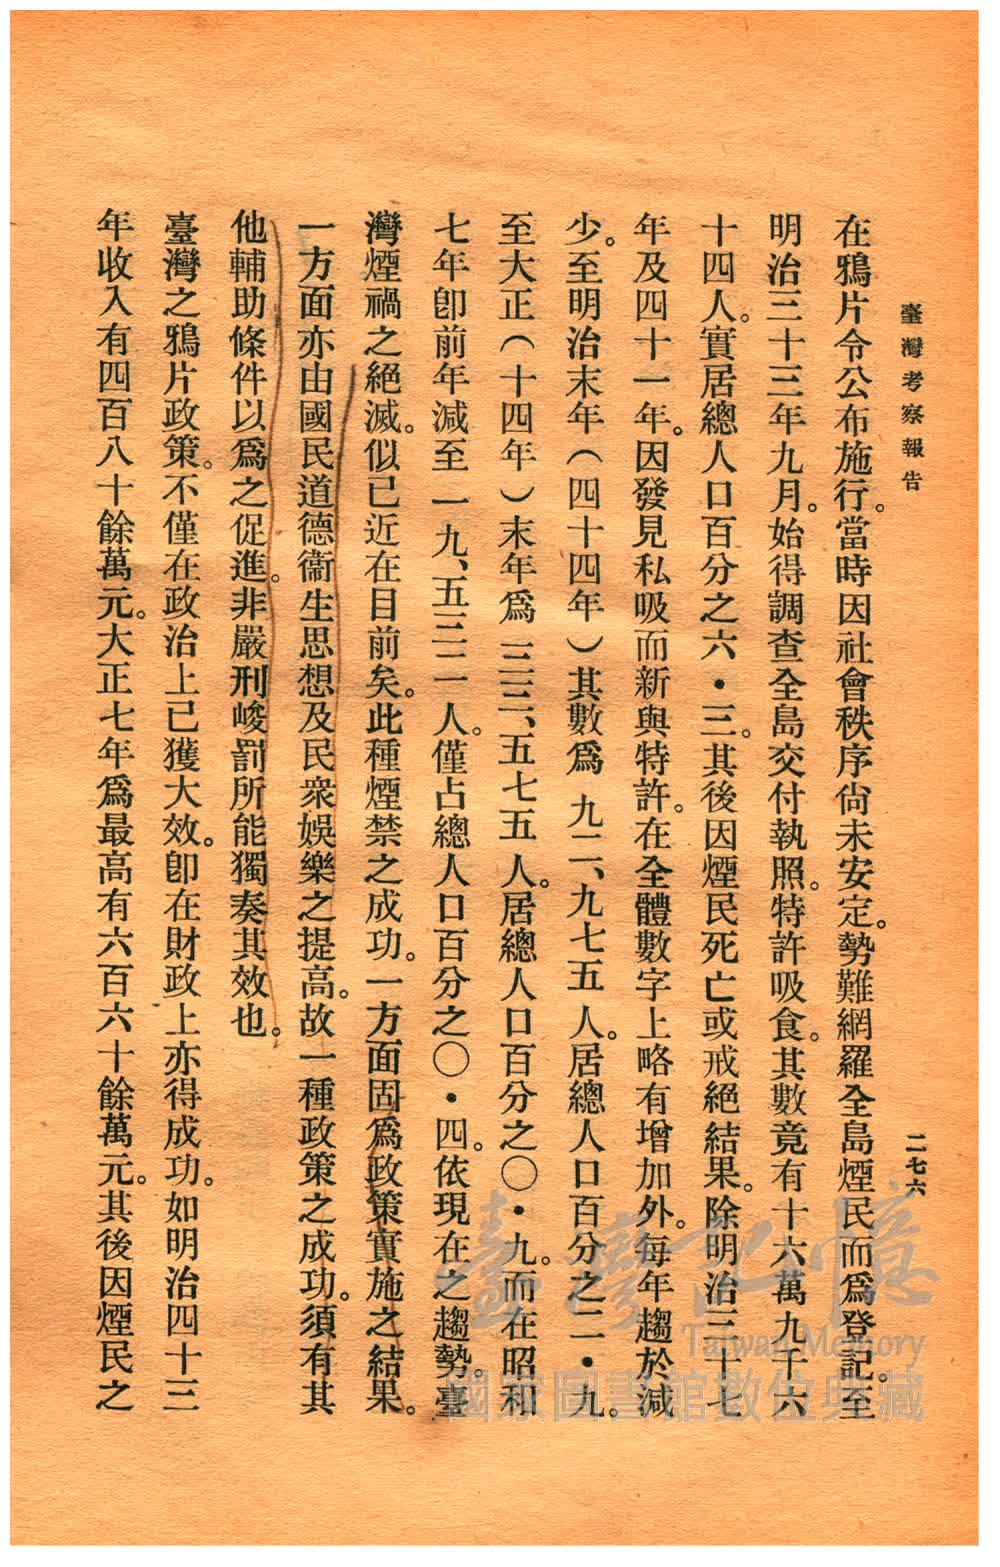 臺灣考察報告
二七六
在鴉片令公布施行。當時因社會秩序尙未安定。勢難網羅全島煙民而爲登記。至
明治三十三年九月。始得調查全島交付執照。特許吸食。其數竟有十六萬九千六
十四人。實居總人口百分之六・三。其後因煙民死亡或戒絕結果。除明治三十七
年及四十一年。因發見私吸而新與特許。在全體數字上略有增加外。每年趨於減
少。至明治末年（四十四年）其數爲九二、九七五人。居總人口百分之二・九。
至大正（十四年）末年爲三三、五七五人。居總人口百分之〇・九。而在昭和
七年卽前年減至一九、五三二人。僅占總人口百分之〇・四。依現在之趨勢。臺
灣煙禍之絕滅。似已近在目前矣。此種煙禁之成功。一方面固爲政策實施之結果。
一方面亦由國民道德衞生思想及民衆娛樂之提高。故一種政策之成功。須有其
他輔助條件以爲之促進。非嚴刑峻罰所能獨奏其效也。
臺灣之鴉片政策。不僅在政治上已獲大效。卽在財政上亦得成功。如明治四十三
年收入有四百八十餘萬元。大正七年爲最高有六百六十餘萬元。其後因煙民之
臺灣記憶
Taiwan Memory
國家圖書館數位典藏